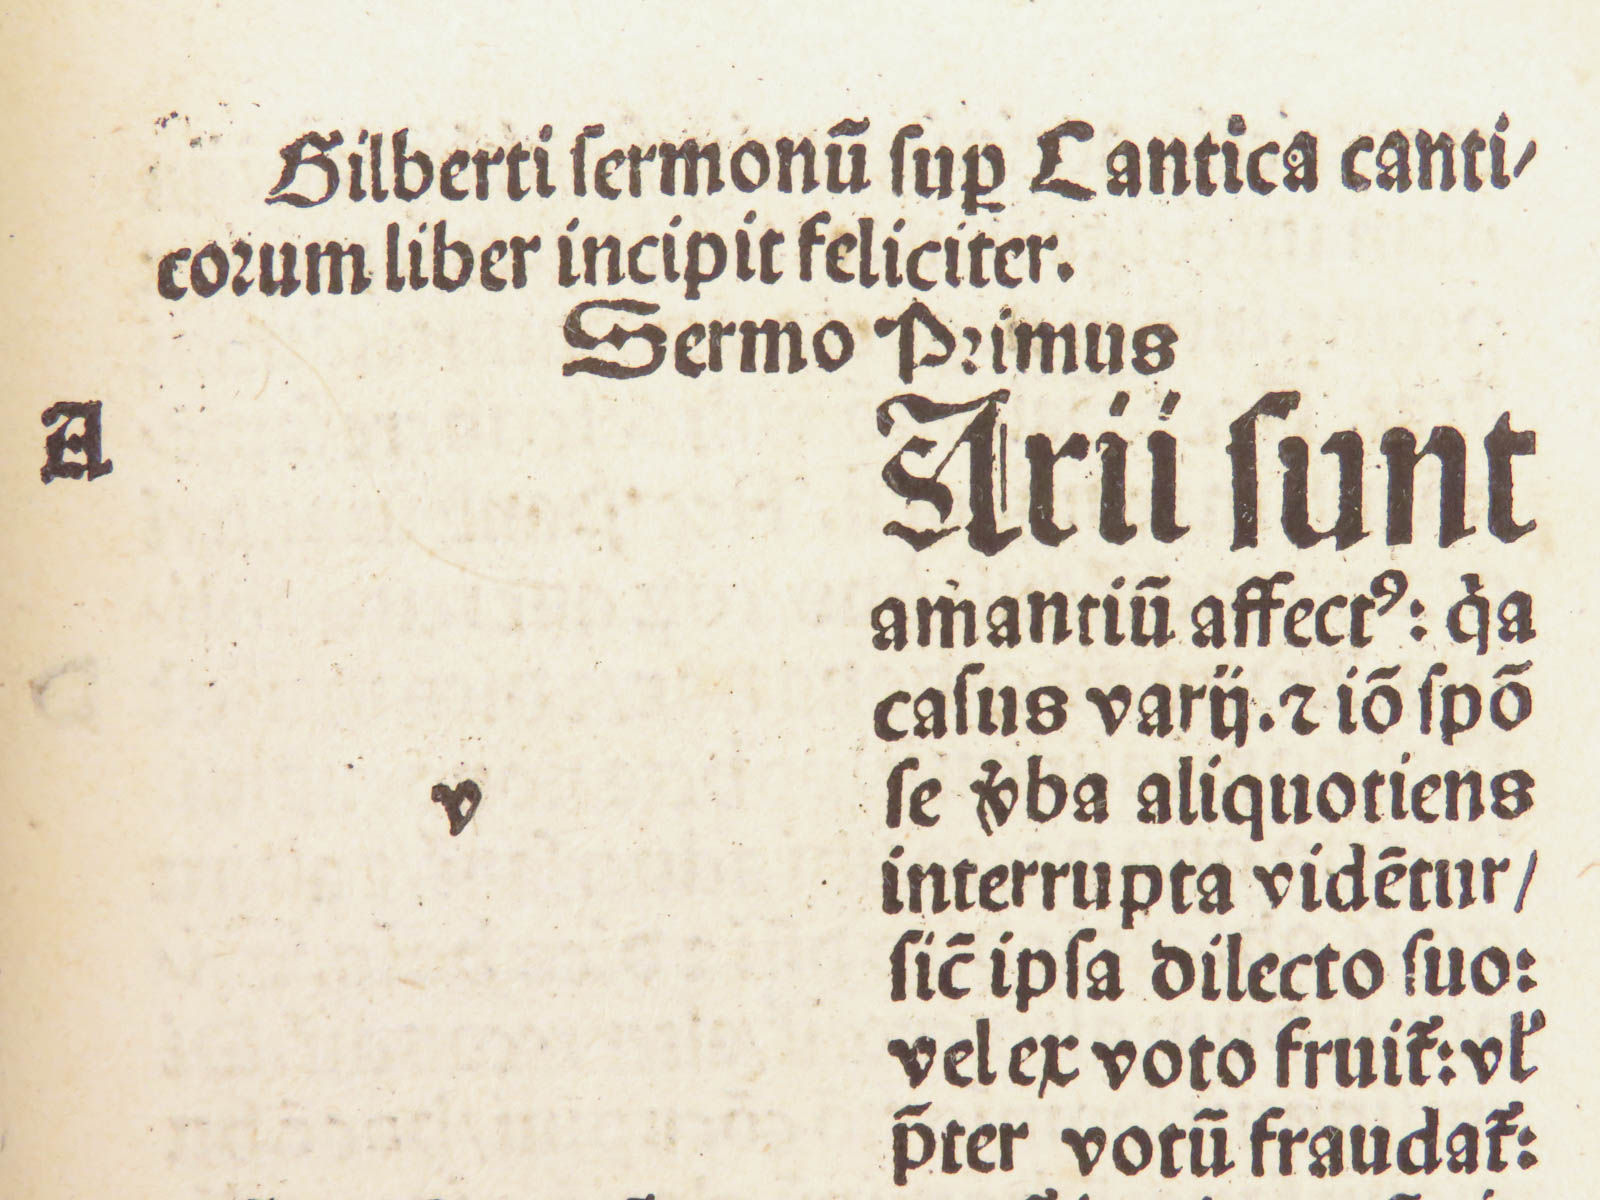 Gilberti ſermonū ſuꝑ Cantica canti/
coꝛum liber incipit feliciter.
Sermo Pꝛimus
A
Arii ſunt
amantiū affectꝰ: qͥa
caſus varij. ⁊ iō ſpō
v
ſe v̓ba aliquotiens
interrupta vidētur/
ſic̄ ipſa dilecto ſuo:
vel ex voto fruit᷑: vl̓
p̄ter votū fraudat᷑: